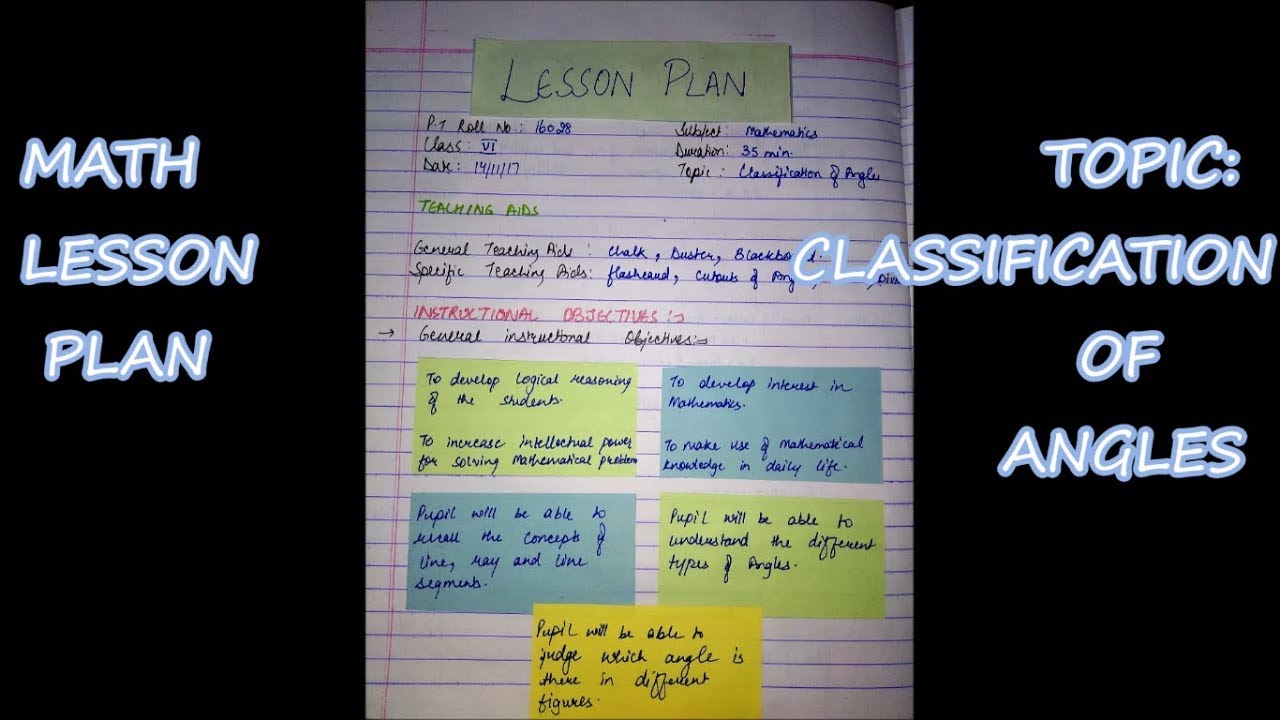 MATH
LESSON
PLAN
TOPIC:
CLASSIFICATION
OF
ANGLES
LESSON PLAN
P.T Roll No.: 16028
Class: VI
Date: 14/11/17
Subject: Mathematics
Duration: 35 min.
Topic: Classification of Angles
TEACHING AIDS
General Teaching Aids: Chalk, Duster,
Specific Teaching Aids: flashcard, Cutouts of
INSTRUCTIONAL OBJECTIVES:→
→ General instructional Objectives:→
To develop logical reasoning
of the students.
To increase intellectual power
for solving Mathematical problem
To develop interest in
Mathematics.
To make use of Mathematical
knowledge in daily life.
Pupil will be able to
recall the concepts of
line, ray and line
segment.
Pupil will be able to
understand the different
types of Angles.
Pupil will be able to
judge which angle is
there in different
figures.